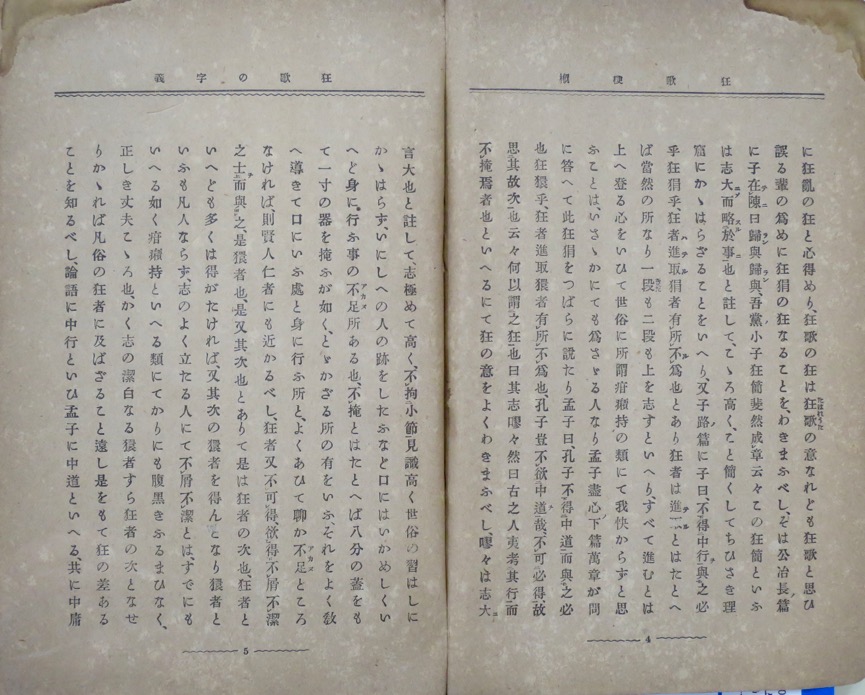 狂歌梗概
に狂亂の狂と心得めり、狂歌の狂は狂歌の意なれども狂歌と思ひ
誤る輩の爲めに狂狷の狂なることを、わきまふべし、そは公冶長篇
に子在陳曰歸與歸與吾黨小子狂簡斐然成章云々この狂簡といふ
は志大而略於事也と註して、こゝろ高く、こと簡くしてちひさき理
窟にかゝはらざることをいへり、又子路篇に子曰、不得中行與之必
乎狂狷乎、狂者進取狷者有所不爲也とあり狂者は進一とはたとへ
ば當然の所なり一段も二段も上を志すといへり、すべて進むとは
上へ登る心をいひて世俗に所謂疳癪持の類にて我快からずと思
ふことは、いさゝかにても爲さゞる人なり孟子盡心下篇萬章が問
に答へて此狂狷をつばらに説たり孟子曰、孔子不得中道而與之必
也狂獧乎、狂者進取獧者有所不爲也、孔子豈不欲中道哉、不可必得、故
思其故次也云々何以謂之狂也曰其志嘐々然曰古之人夷考其行而
不掩焉者也といへるにて狂の意をよくわきまふべし、嘐々は志大
4
狂歌の字義
言大也と註して、志極めて高く、不拘小節見識高く世俗の習はしに
かゝはらず、いにしへの人の跡をしたふなど口にはいかめしくい
へど身に行ふ事の不足所ある也、不掩とはたとへば八分の蓋をも
て一寸の器を掩ふが如く、とゞかざる所の有をいふ、それをよく敎
へ導きて口にいふ處と身に行ふ所と、よくあひて聊か不足ところ
なければ、則賢人仁者にも近かるべし、狂者又不可得、欲得不屑不潔
之士而與之、是獧者也、是又其次也とありて是は狂者の次也、狂者と
いへども多くは得がたければ、又其次の獧者を得んとなり獧者と
いふも凡人ならず、志のよく立たる人にて不屑不潔とは、すでにも
いへる如く疳癪持といへる類にてかりにも腹黒きふるまひなく、
正しき丈夫こゝろ也、かく志の潔白なる獧者すら狂者の次となせ
りかゝれば凡俗の狂者に及ばざること遠し是をもて狂の差ある
ことを知るべし、論語に中行といひ孟子に中道といへる、共に中庸
5